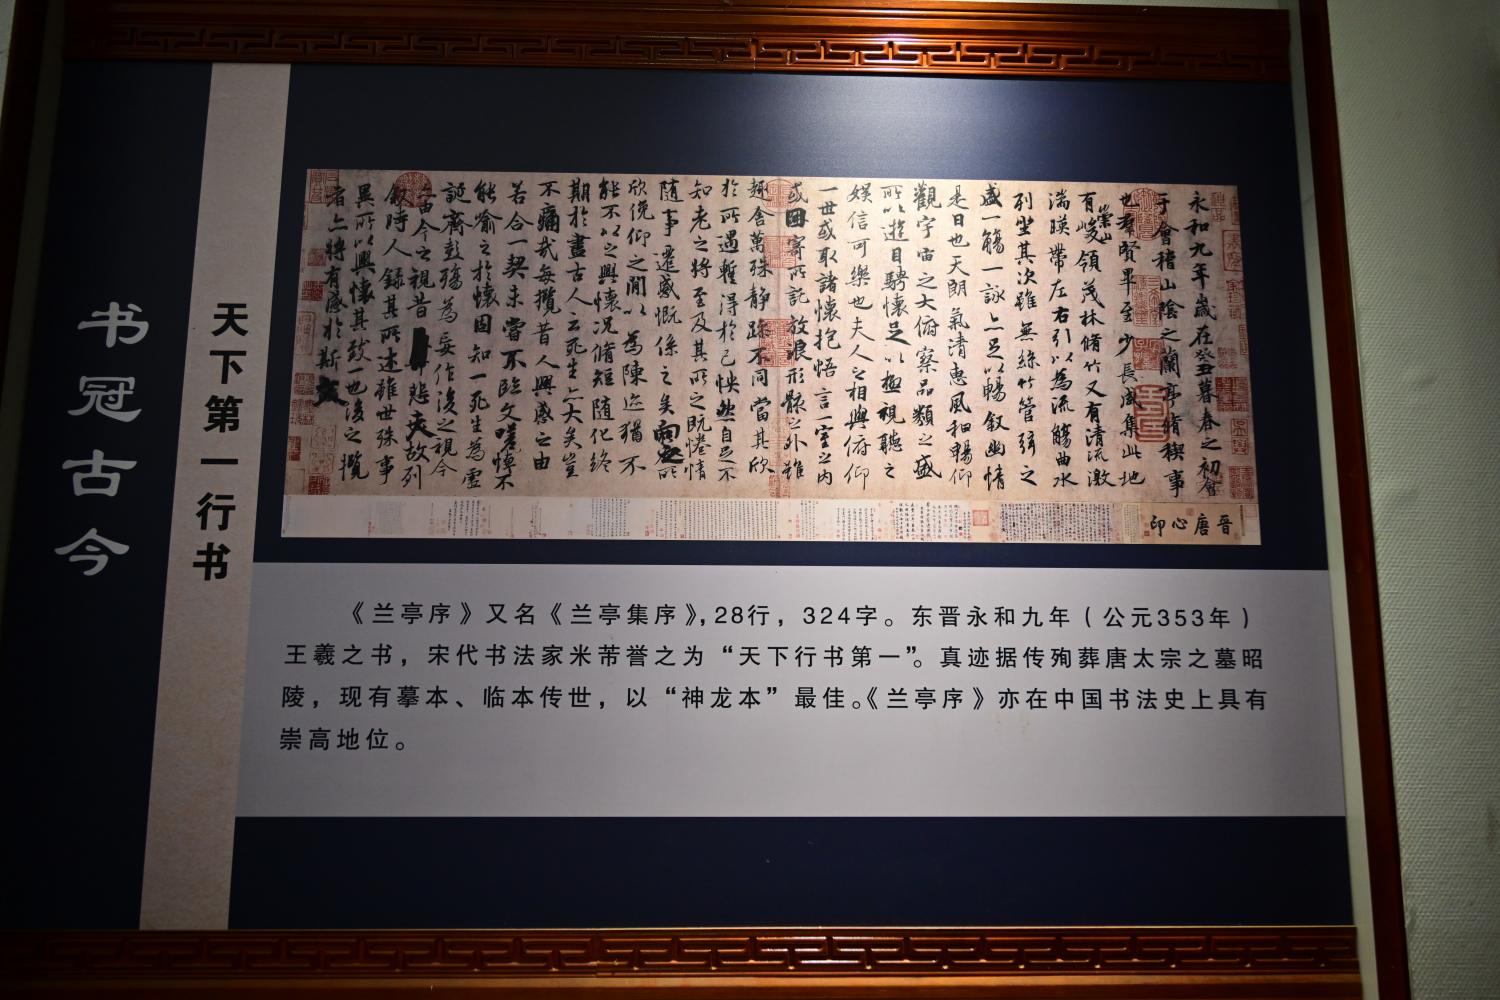 书冠古今
天下第一行书
永和九年歲在癸丑暮春之初會
于會稽山陰之蘭亭脩稧事
也羣賢畢至少長咸集此地
有崇山峻領茂林脩竹又有清流激
湍暎帶左右引以為流觴曲水
列坐其次雖無絲竹管弦之
盛一觴一詠亦足以暢敘幽情
是日也天朗氣清惠風和暢仰
觀宇宙之大俯察品類之盛
所以遊目騁懷足以極視聽之
娛信可樂也夫人之相與俯仰
一世或取諸懷抱悟言一室之內
或因寄所託放浪形骸之外雖
趣舍萬殊靜躁不同當其欣
於所遇暫得於己怏然自足不
知老之將至及其所之既惓情
隨事遷感慨係之矣向之所
欣俛仰之間以為陳迹猶不
能不以之興懷況脩短隨化終
期於盡古人云死生亦大矣豈
不痛哉每攬昔人興感之由
若合一契未嘗不臨文嗟悼不
能喻之於懷固知一死生為虛
誕齊彭殤為妄作後之視今
亦由今之視昔悲夫故列
敘時人錄其所述雖世殊事
異所以興懷其致一也後之攬
者亦將有感於斯文
晉唐心印
《兰亭序》又名《兰亭集序》，28行，324字。东晋永和九年（公元353年）
王羲之书，宋代书法家米芾誉之为“天下行书第一”。真迹据传殉葬唐太宗之墓昭
陵，现有摹本、临本传世，以“神龙本”最佳。《兰亭序》亦在中国书法史上具有
崇高地位。